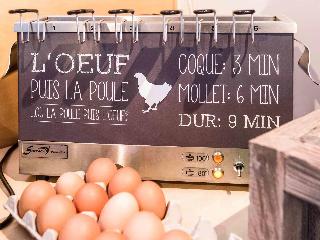 1 2 3 4 5 6
L'OEUF
PUIS LA POULE
(OU LA POULE PUIS L'OEUF)
COQUE: 3 MIN
MOLLET: 6 MIN
DUR: 9 MIN
100°
80°